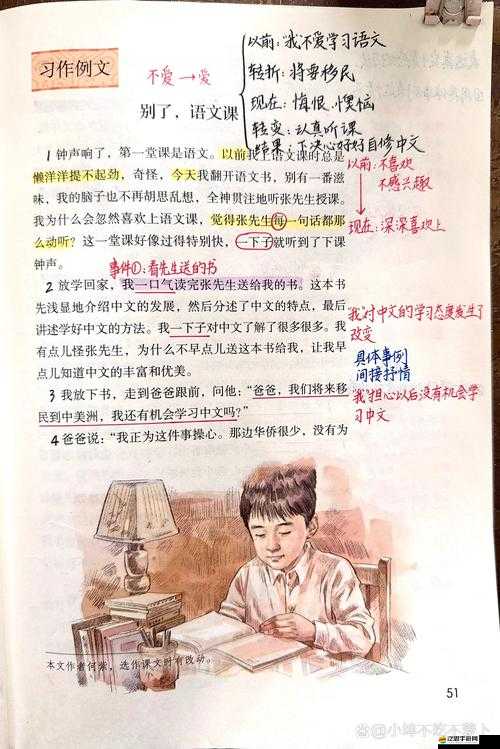 习作例文
不爱→爱
别了，语文课
以前：“我”不爱学习语文
转折：将要移民
现在：悔恨、懊恼
转变：认真听课
结果：下决心好好自修中文
1 钟声响了，第一堂课是语文。以前我上语文课时总是
懒洋洋提不起劲，奇怪，今天我翻开语文书，别有一番滋
味，我的脑子也不再胡思乱想，全神贯注地听张先生授课。
我为什么会忽然喜欢上语文课，觉得张先生每一句话都那
么动听？这一堂课好像过得特别快，一下子就听到了下课
钟声。
以前：不喜欢
不感兴趣
现在：深深喜欢上
事件①：看先生送的书
2 放学回家，我一口气读完张先生送给我的书。这本书
先浅显地介绍中文的发展，然后分述了中文的特点，最后
讲述学好中文的方法。我一下子对中文了解了很多很多。我
有点儿怪张先生，为什么不早点儿送这本书给我，让我早
点儿知道中文的丰富和优美。
“我”对中文的学习态度发生了
改变
具体事例
间接抒情
3 我放下书，走到爸爸跟前，问他：“爸爸，我们将来移
民到中美洲，我还有机会学习中文吗？”
“我”担心以后没有机会学
习中文
4 爸爸说：“我正为这件事操心。那边华侨很少，没有为
本文作者何紫，选作课文时有改动。
51